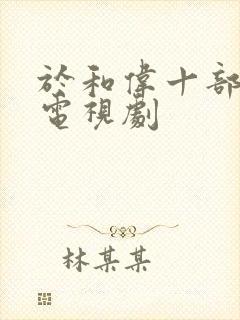 於和偉十部
電視劇
林某某